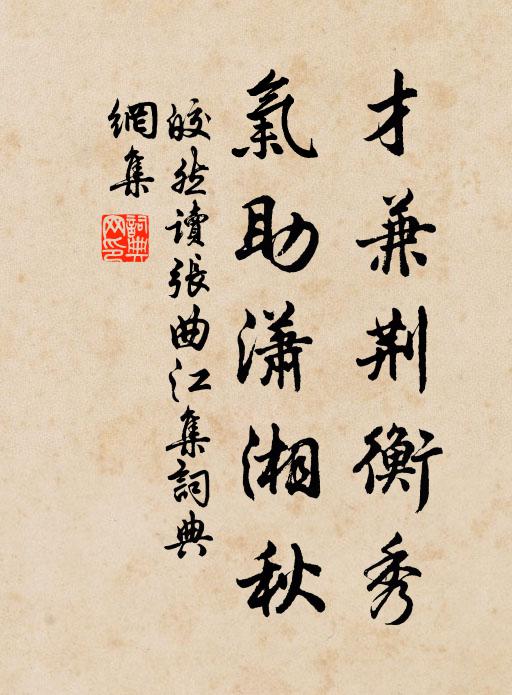 才兼荆衡秀
氣助瀟湘秋
皎然讀張曲江集詞典
網集
詞典網印